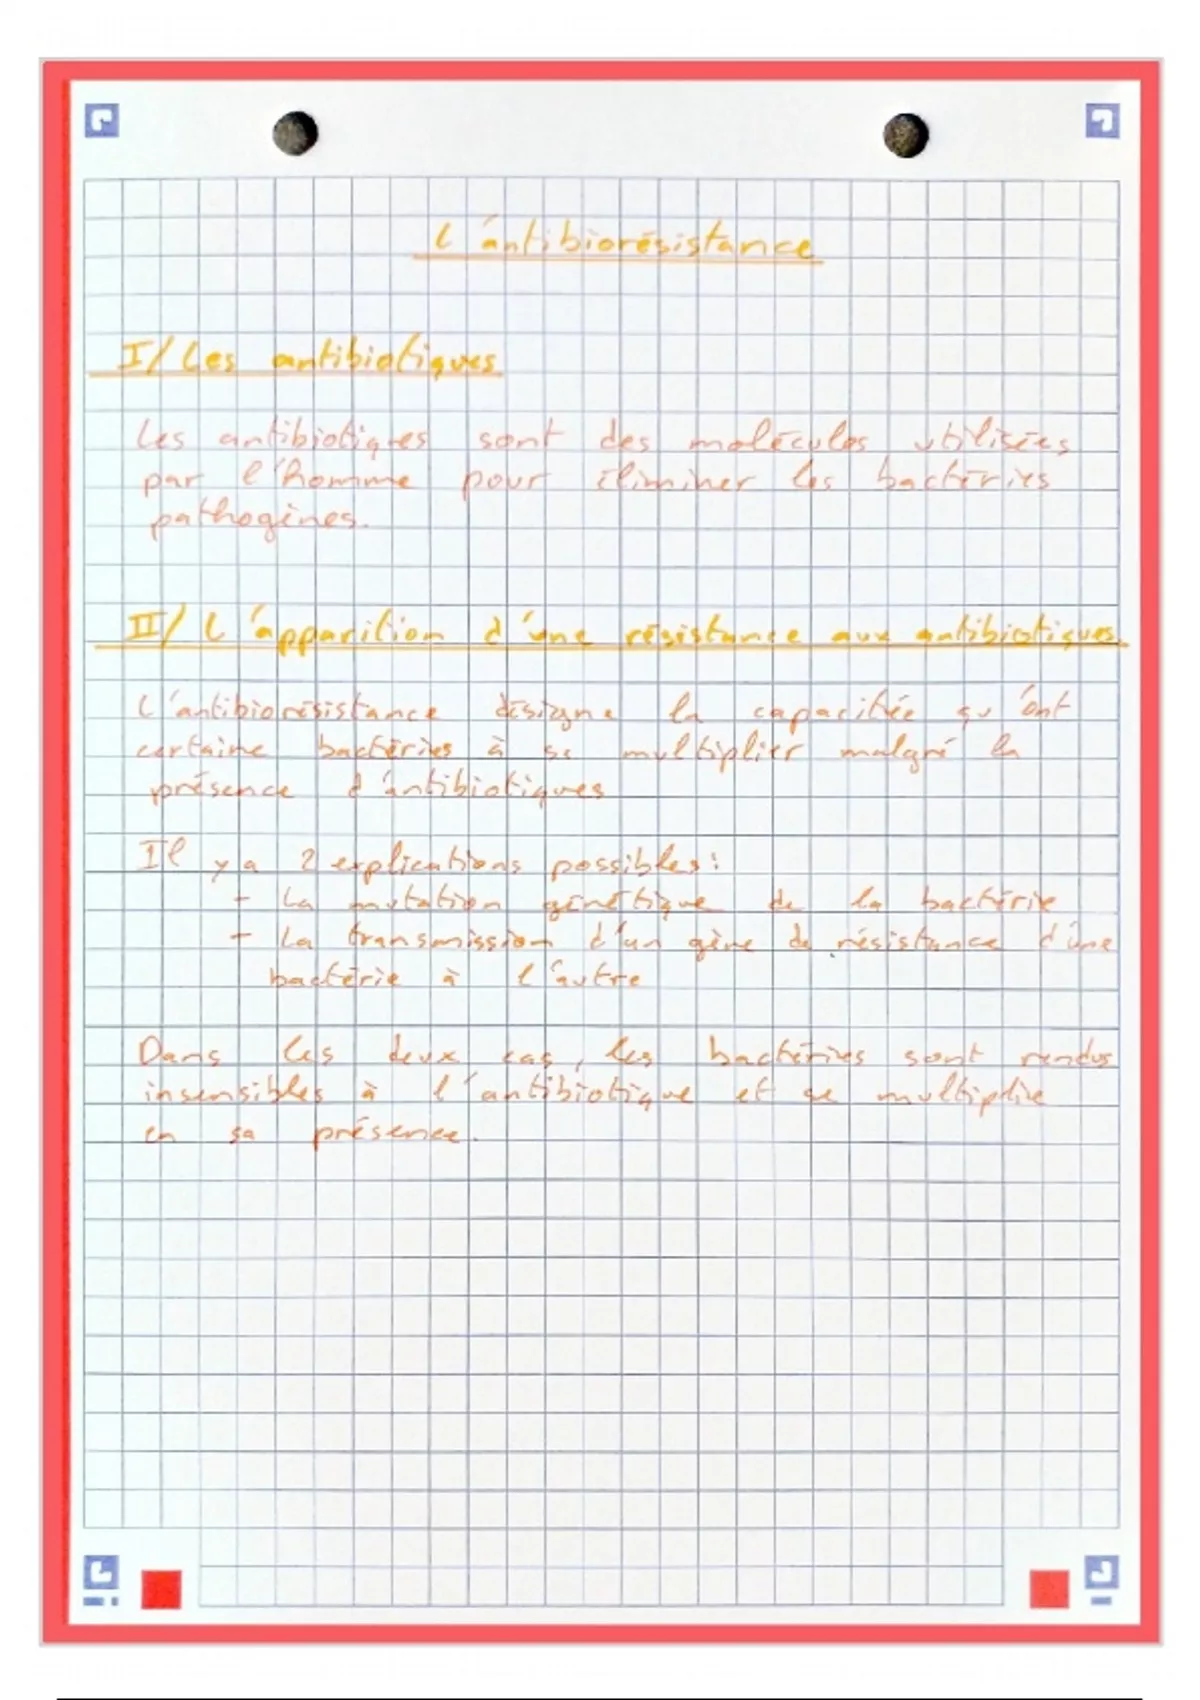 L'antibiorésistance
I/ Les antibiotiques
Les antibiotiques sont des molécules utilisées
par l'homme pour éliminer les bactéries
pathogènes.
II/ L'apparition d'une résistance aux antibiotiques.
L'antibiorésistance désigne la capacitée qu'ont
certaine bactéries à se multiplier malgré la
présence d'antibiotiques
Il y a 2 explications possibles :
- La mutation génétique de la bactérie
- La transmission d'un gène de résistance d'une
bactérie à l'autre
Dans les deux cas, les bactéries sont rendus
insensibles à l'antibiotique et se multiplie
en sa présence.